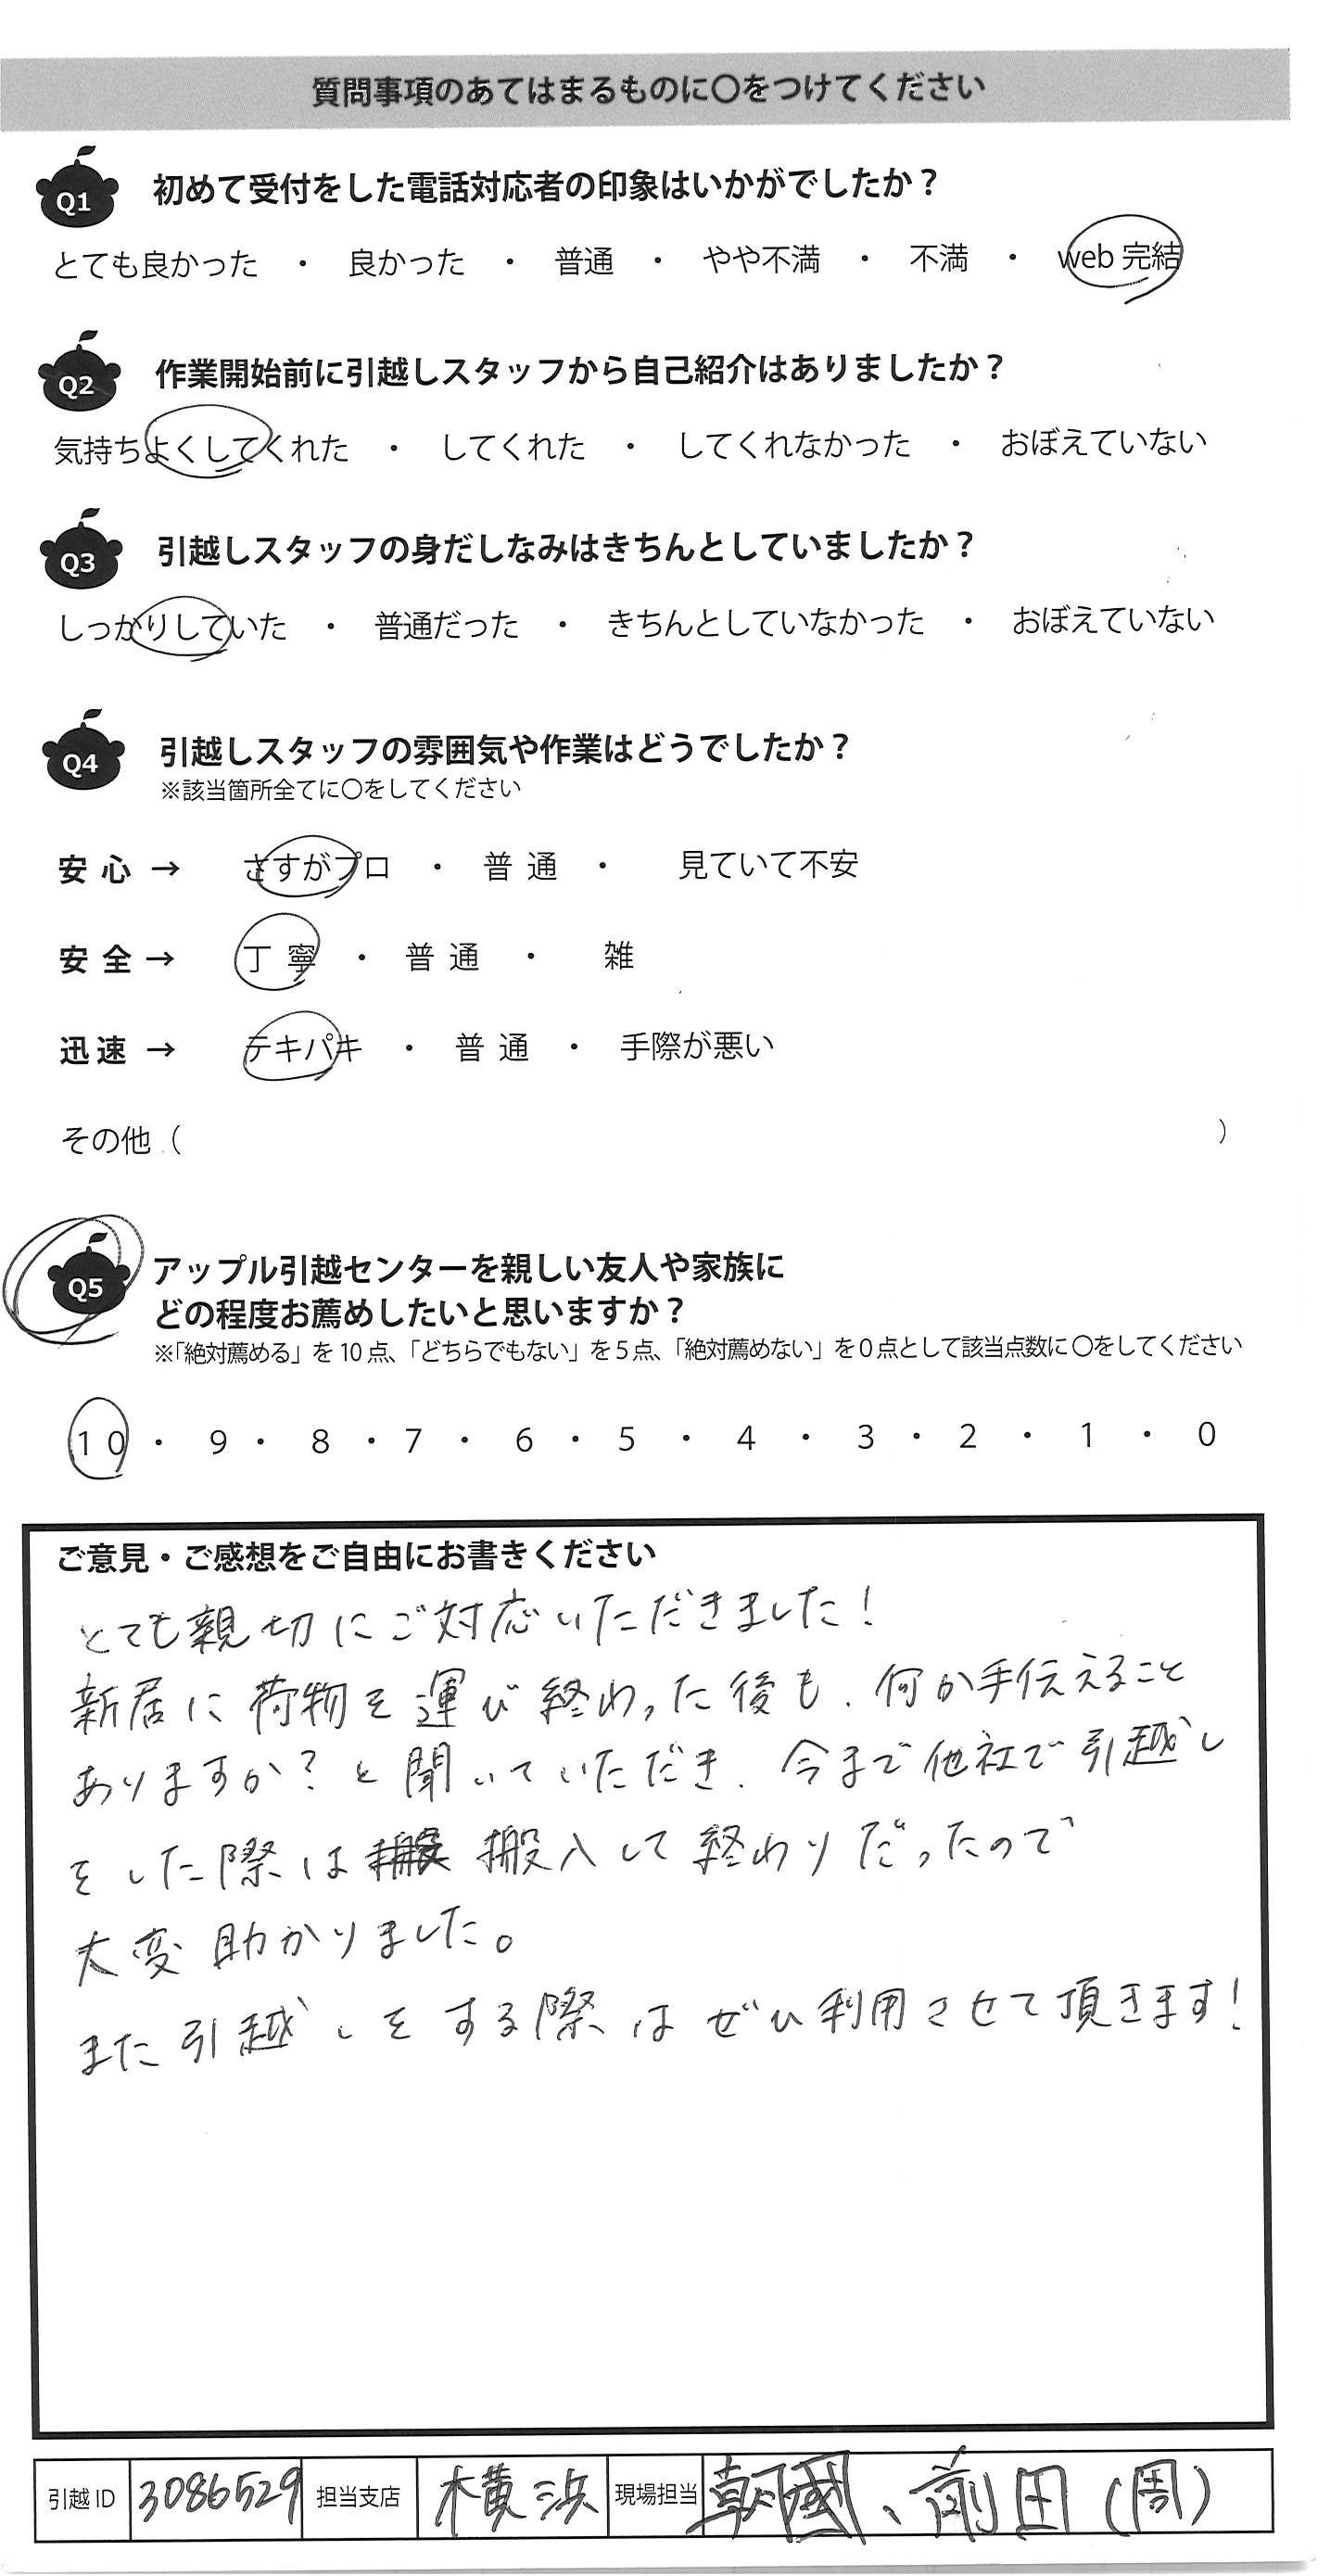 質問事項のあてはまるものに〇をつけてください
Q1 初めて受付をした電話対応者の印象はいかがでしたか？
とても良かった ・ 良かった ・ 普通 ・ やや不満 ・ 不満 ・ web 完結
Q2 作業開始前に引越しスタッフから自己紹介はありましたか？
気持ちよくしてくれた ・ してくれた ・ してくれなかった ・ おぼえていない
Q3 引越しスタッフの身だしなみはきちんとしていましたか？
しっかりしていた ・ 普通だった ・ きちんとしていなかった ・ おぼえていない
Q4 引越しスタッフの雰囲気や作業はどうでしたか？
※該当箇所全てに〇をしてください
安心 → さすがプロ ・ 普通 ・ 見ていて不安
安全 → 丁寧 ・ 普通 ・ 雑
迅速 → テキパキ ・ 普通 ・ 手際が悪い
その他（ ）
Q5 アップル引越センターを親しい友人や家族に
どの程度お薦めしたいと思いますか？
※「絶対薦める」を 10 点、「どちらでもない」を 5 点、「絶対薦めない」を 0 点として該当点数に 〇をしてください
10 ・ 9 ・ 8 ・ 7 ・ 6 ・ 5 ・ 4 ・ 3 ・ 2 ・ 1 ・ 0
ご意見・ご感想をご自由にお書きください
とても親切にご対応いただきました！
新居に荷物を運び終わった後も、何か手伝えること
ありますか？と聞いていただき、今まで他社で引越し
をした際は 搬入して終わりだったので
大変助かりました。
また引越しをする際はぜひ利用させて頂きます！
引越 ID 3086529 担当支店 横浜 現場担当 朝國、前田（周）